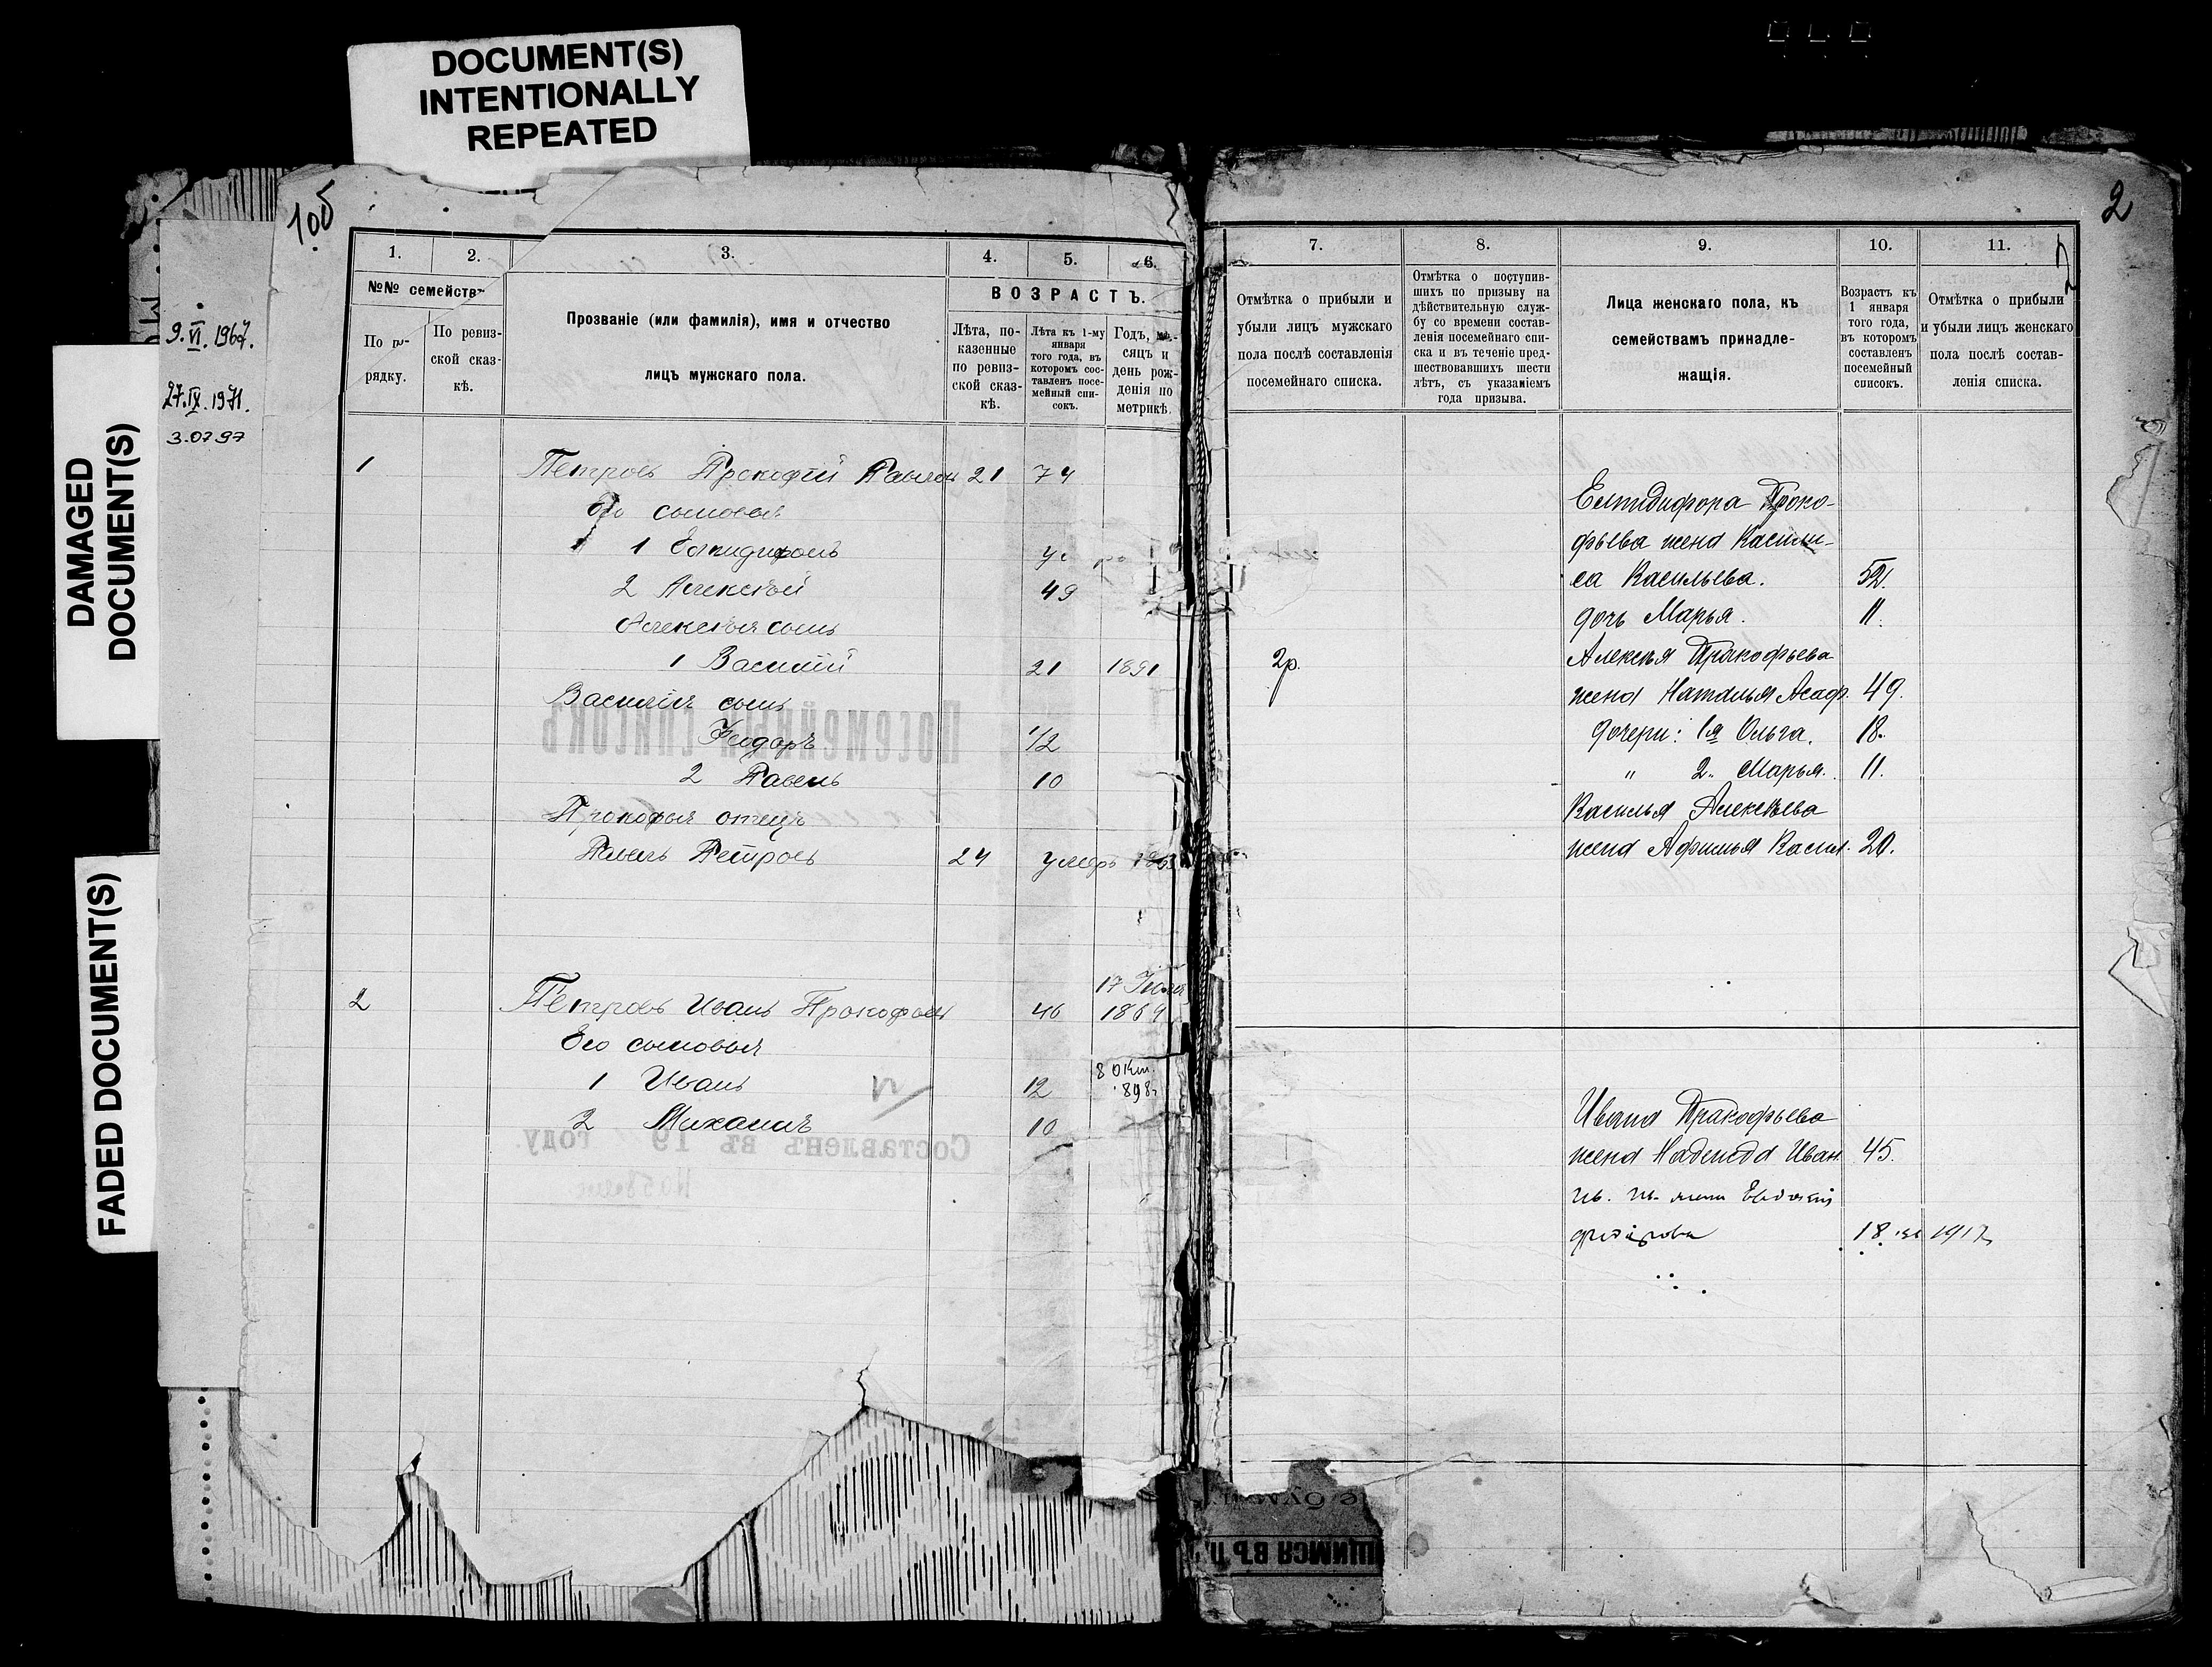 DOCUMENT(S)
INTENTIONALLY
REPEATED
DAMAGED
DOCUMENT(S)
FADED DOCUMENT(S)
9.VI.1967.
27.IX.1971.
3.07.97
1об
1. 2. 3. 4. 5. 6.
№№ семействъ
По по-
рядку.
По ревиз-
ской сказ-
кѣ.
Прозваніе (или фамилія), имя и отчество
лицъ мужскаго пола.
ВОЗРАСТЪ.
Лѣта, по-
казенные
по ревиз-
ской сказ-
кѣ.
Лѣта къ 1-му
января
того года, въ
которомъ сос-
тавленъ посе-
мейный спи-
сокъ.
Годъ, мѣ-
сяцъ и
день рож-
денія по
метрикѣ.
1 Петровъ Прокофій Павлов 21 74
Его сыновья
1 Елпидифоръ
2 Алексѣй 49
Алексѣя сынъ
1 Василій 21 1891
Василія сынъ
Феодоръ 1/2
2 Павелъ 10
Прокофья отецъ
Павелъ Петровъ 24 умеръ
17 Іюля
2 Петровъ Иванъ Прокофьев 46 1869
Его сыновья
8 Окт.
1 Иванъ 12 1898
2 Михаилъ 10
2
7. 8. 9. 10. 11.
Отмѣтка о прибыли и
убыли лицъ мужскаго
пола послѣ составленія
посемейнаго списка.
Отмѣтка о поступив-
шихъ по призыву на
дѣйствительную служ-
бу со времени состав-
ленія посемейнаго спи-
ска и въ теченіе пред-
шествовавшихъ шести
лѣтъ, съ указаніемъ
года призыва.
Лица женскаго пола, къ
семействамъ принадле-
жащія.
Возрастъ къ
1 января
того года,
въ которомъ
составленъ
посемейный
списокъ.
Отмѣтка о прибыли
и убыли лицъ женскаго
пола послѣ состав-
ленія списка.
Елпидифора Проко-
фьева жена Васили-
са Васильева. 52.
дочь Марья. 11.
2р. Алексѣя Прокофьева
жена Наталья Агаф. 49.
дочери: 1я Ольга. 18.
" 2 " Марья. 11.
Василья Алексѣева
жена Афимья Васил. 20.
Ивана Прокофьева
жена Надежда Иван. 45.
жена
18 1917